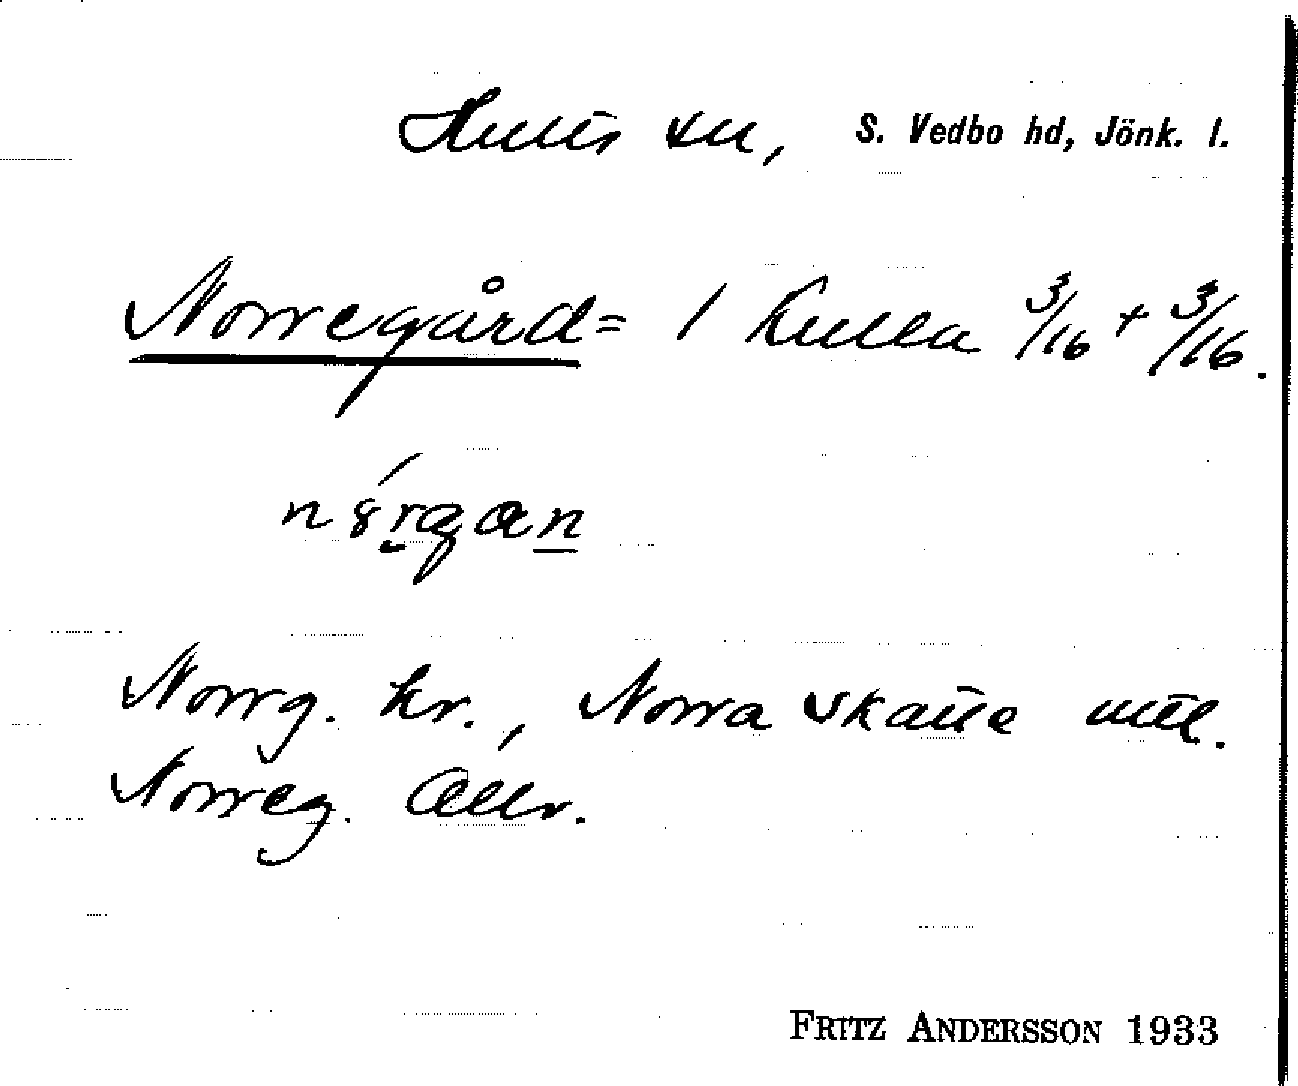 Hults sn, S. Vedbo hd, Jönk. l.
Norregård = 1 Kulla 3/16 + 3/16.
Norrg. kr., Norra
Norreg. Allm.
FRITZ ANDERSSON 1933